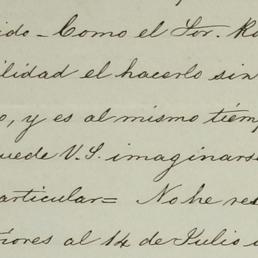 ido - Como el Sor. Ro
ilidad el hacerlo sin
o, y es al mismo tiemp
uede V.S. imaginarse
articular = No he re
riores al 14 de Julio